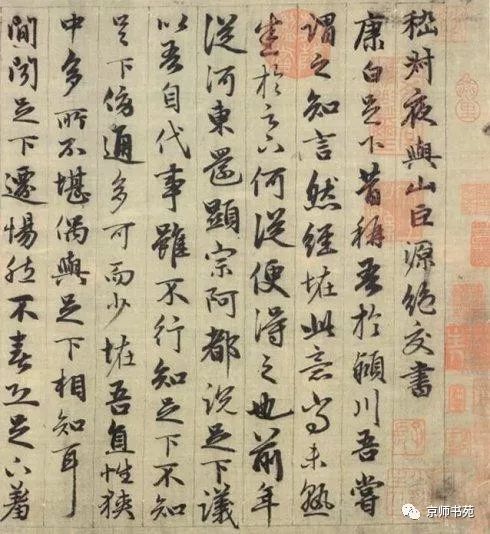 嵇叔夜與山巨源絕交書
康白足下昔稱吾於潁川吾嘗
謂之知言然經怪此意尚未熟
悉於足下何從便得之也前年
從河東還顯宗阿都說足下議
以吾自代事雖不行知足下不知
足下傍通多可而少怪吾直性狹
中多所不堪偶與足下相知耳
間聞足下遷惕然不喜恐足下羞
京师书苑